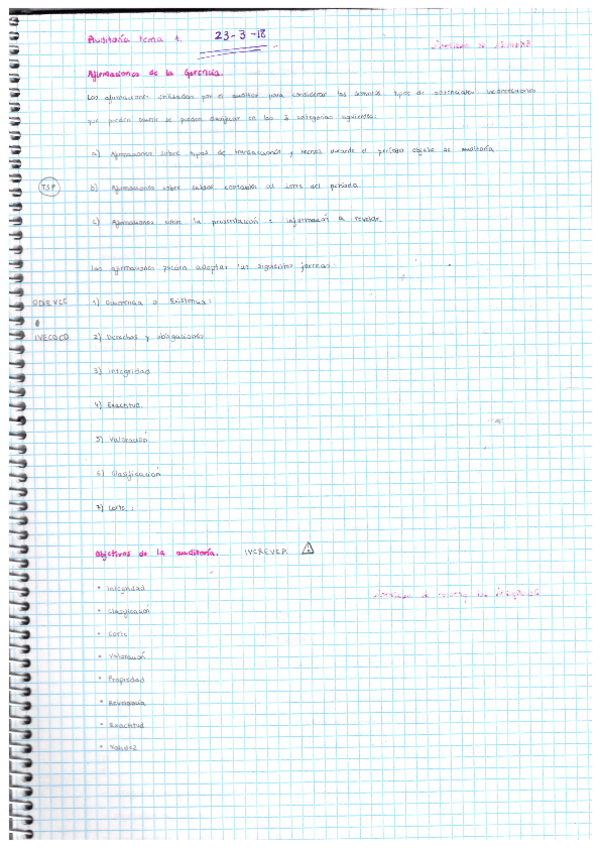 Auditoría tema 1. 23-3-18
Afirmaciones de la Gerencia.
Las afirmaciones utilizadas por el auditor para considerar los distintos tipos de potenciales
que pueden se pueden clasificar en las 3 categorías siguientes:
a) Afirmaciones sobre tipos de transacciones y hechos durante el período objeto de auditoría
TSP
b) Afirmaciones sobre saldos contables al cierre del período
c) Afirmaciones sobre la presentación e información a revelar.
Las afirmaciones pueden adoptar las siguientes formas:
1) Ocurrencia o Existencia:
IVECOCD
2) Derechos y obligaciones
3) Integridad
4) Exactitud
5) Valoración
6) Clasificación
7) Corte.:
Objetivos de la auditoría.
• Integridad
• Clasificación
• Corte
• Valoración
• Propiedad
• Exactitud
• Validez